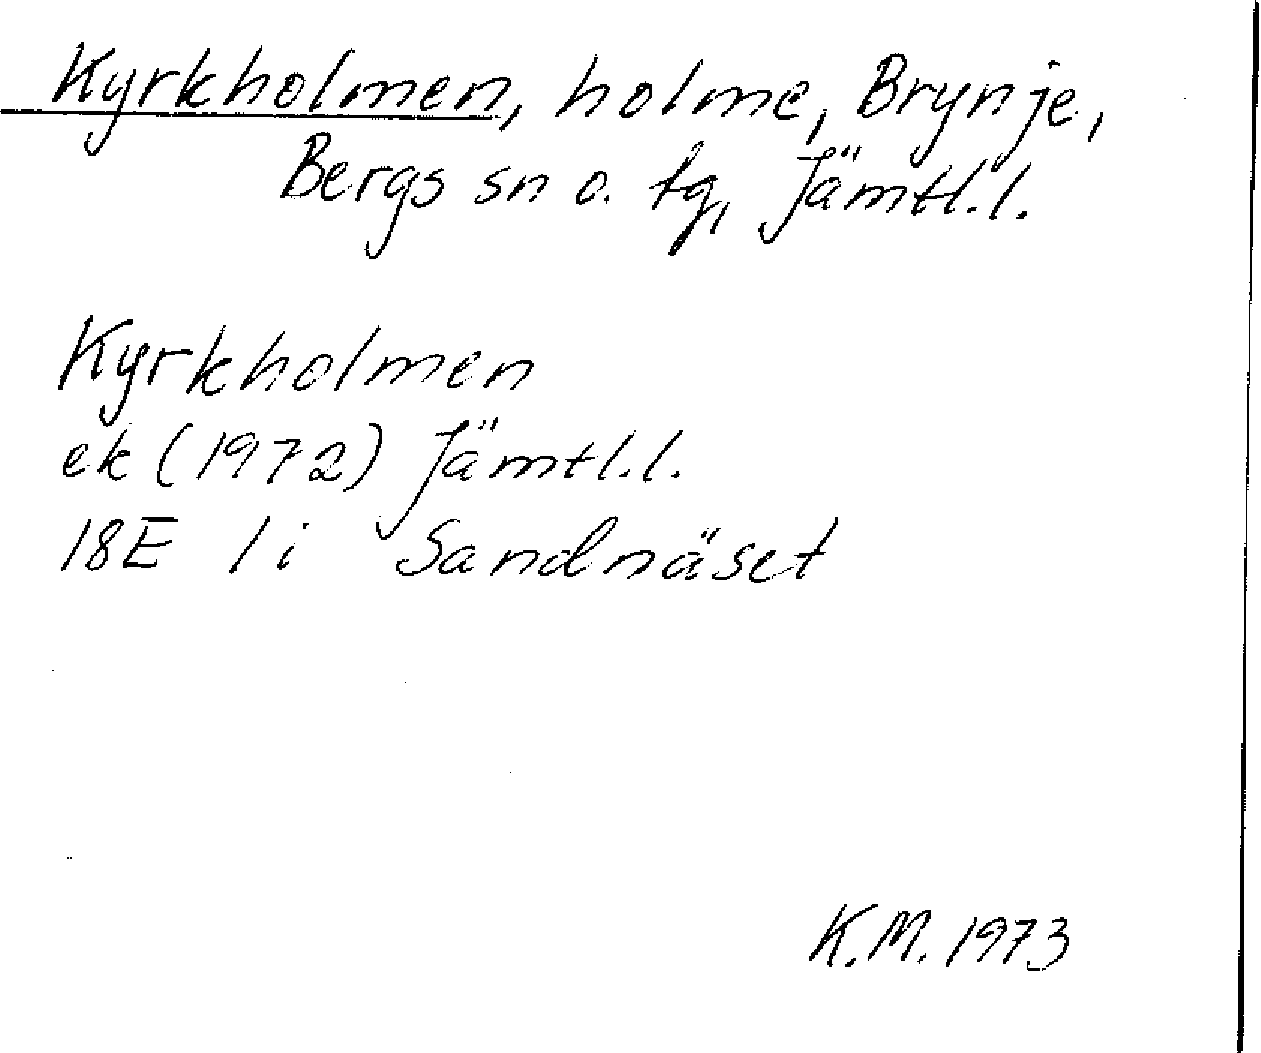 Kyrkholmen, holme, Brynje,
Bergs sn o. tg, Jämtl.l.
Kyrkholmen
ek (1972) Jämtl.l.
18E 1i Sandnäset
K.M. 1973